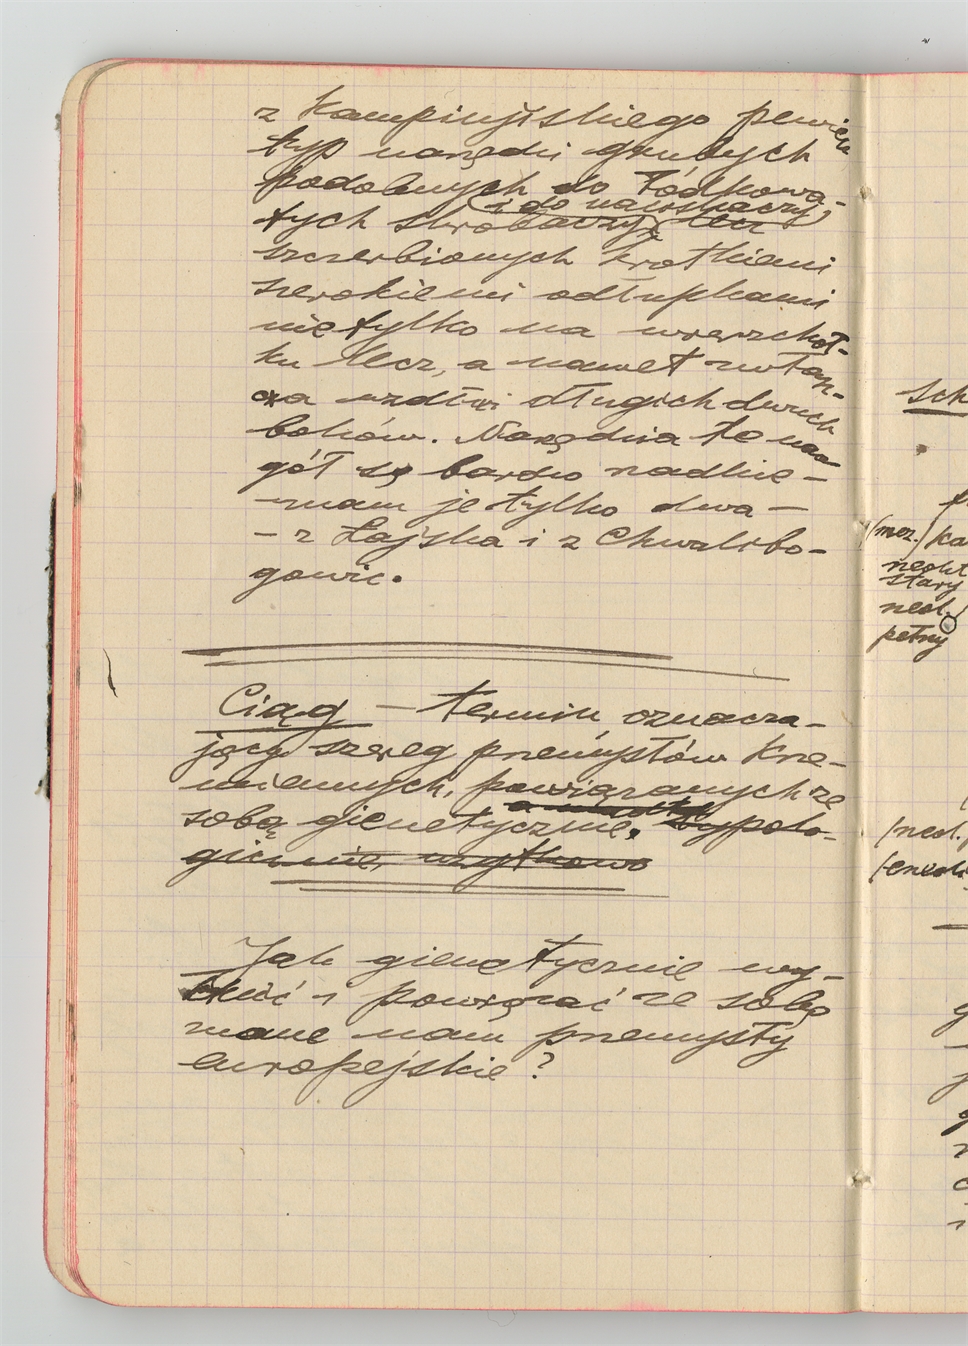 z Kampinijskiego pewien
typ narzędzi grubych
podobnych do łódkowa-
i do
tych skrobaczy, lecz
szczerbionych krótkiemi
szerokiemi odłupkami
nie tylko na wierzchoł-
ku lecz, a nawet
wzdłuż długich dwuch
boków. Narzędzia te na o-
gół są bardzo rzadkie –
– mam je tylko dwa –
– z Łajska i z Chwalibo-
gowic.
Ciąg – termin oznacza-
jący szereg przemysłów krze-
miennych, powiązanych ze
sobą gienetycznie, typolo-
gicznie, użytkowo
Jak gienetycznie wy-
i powiązać ze sobą
znane nam przemysły
europejskie?
sch
(mez.) ka
neolit
stary
neol.
pełny
(neol.
(eneoli